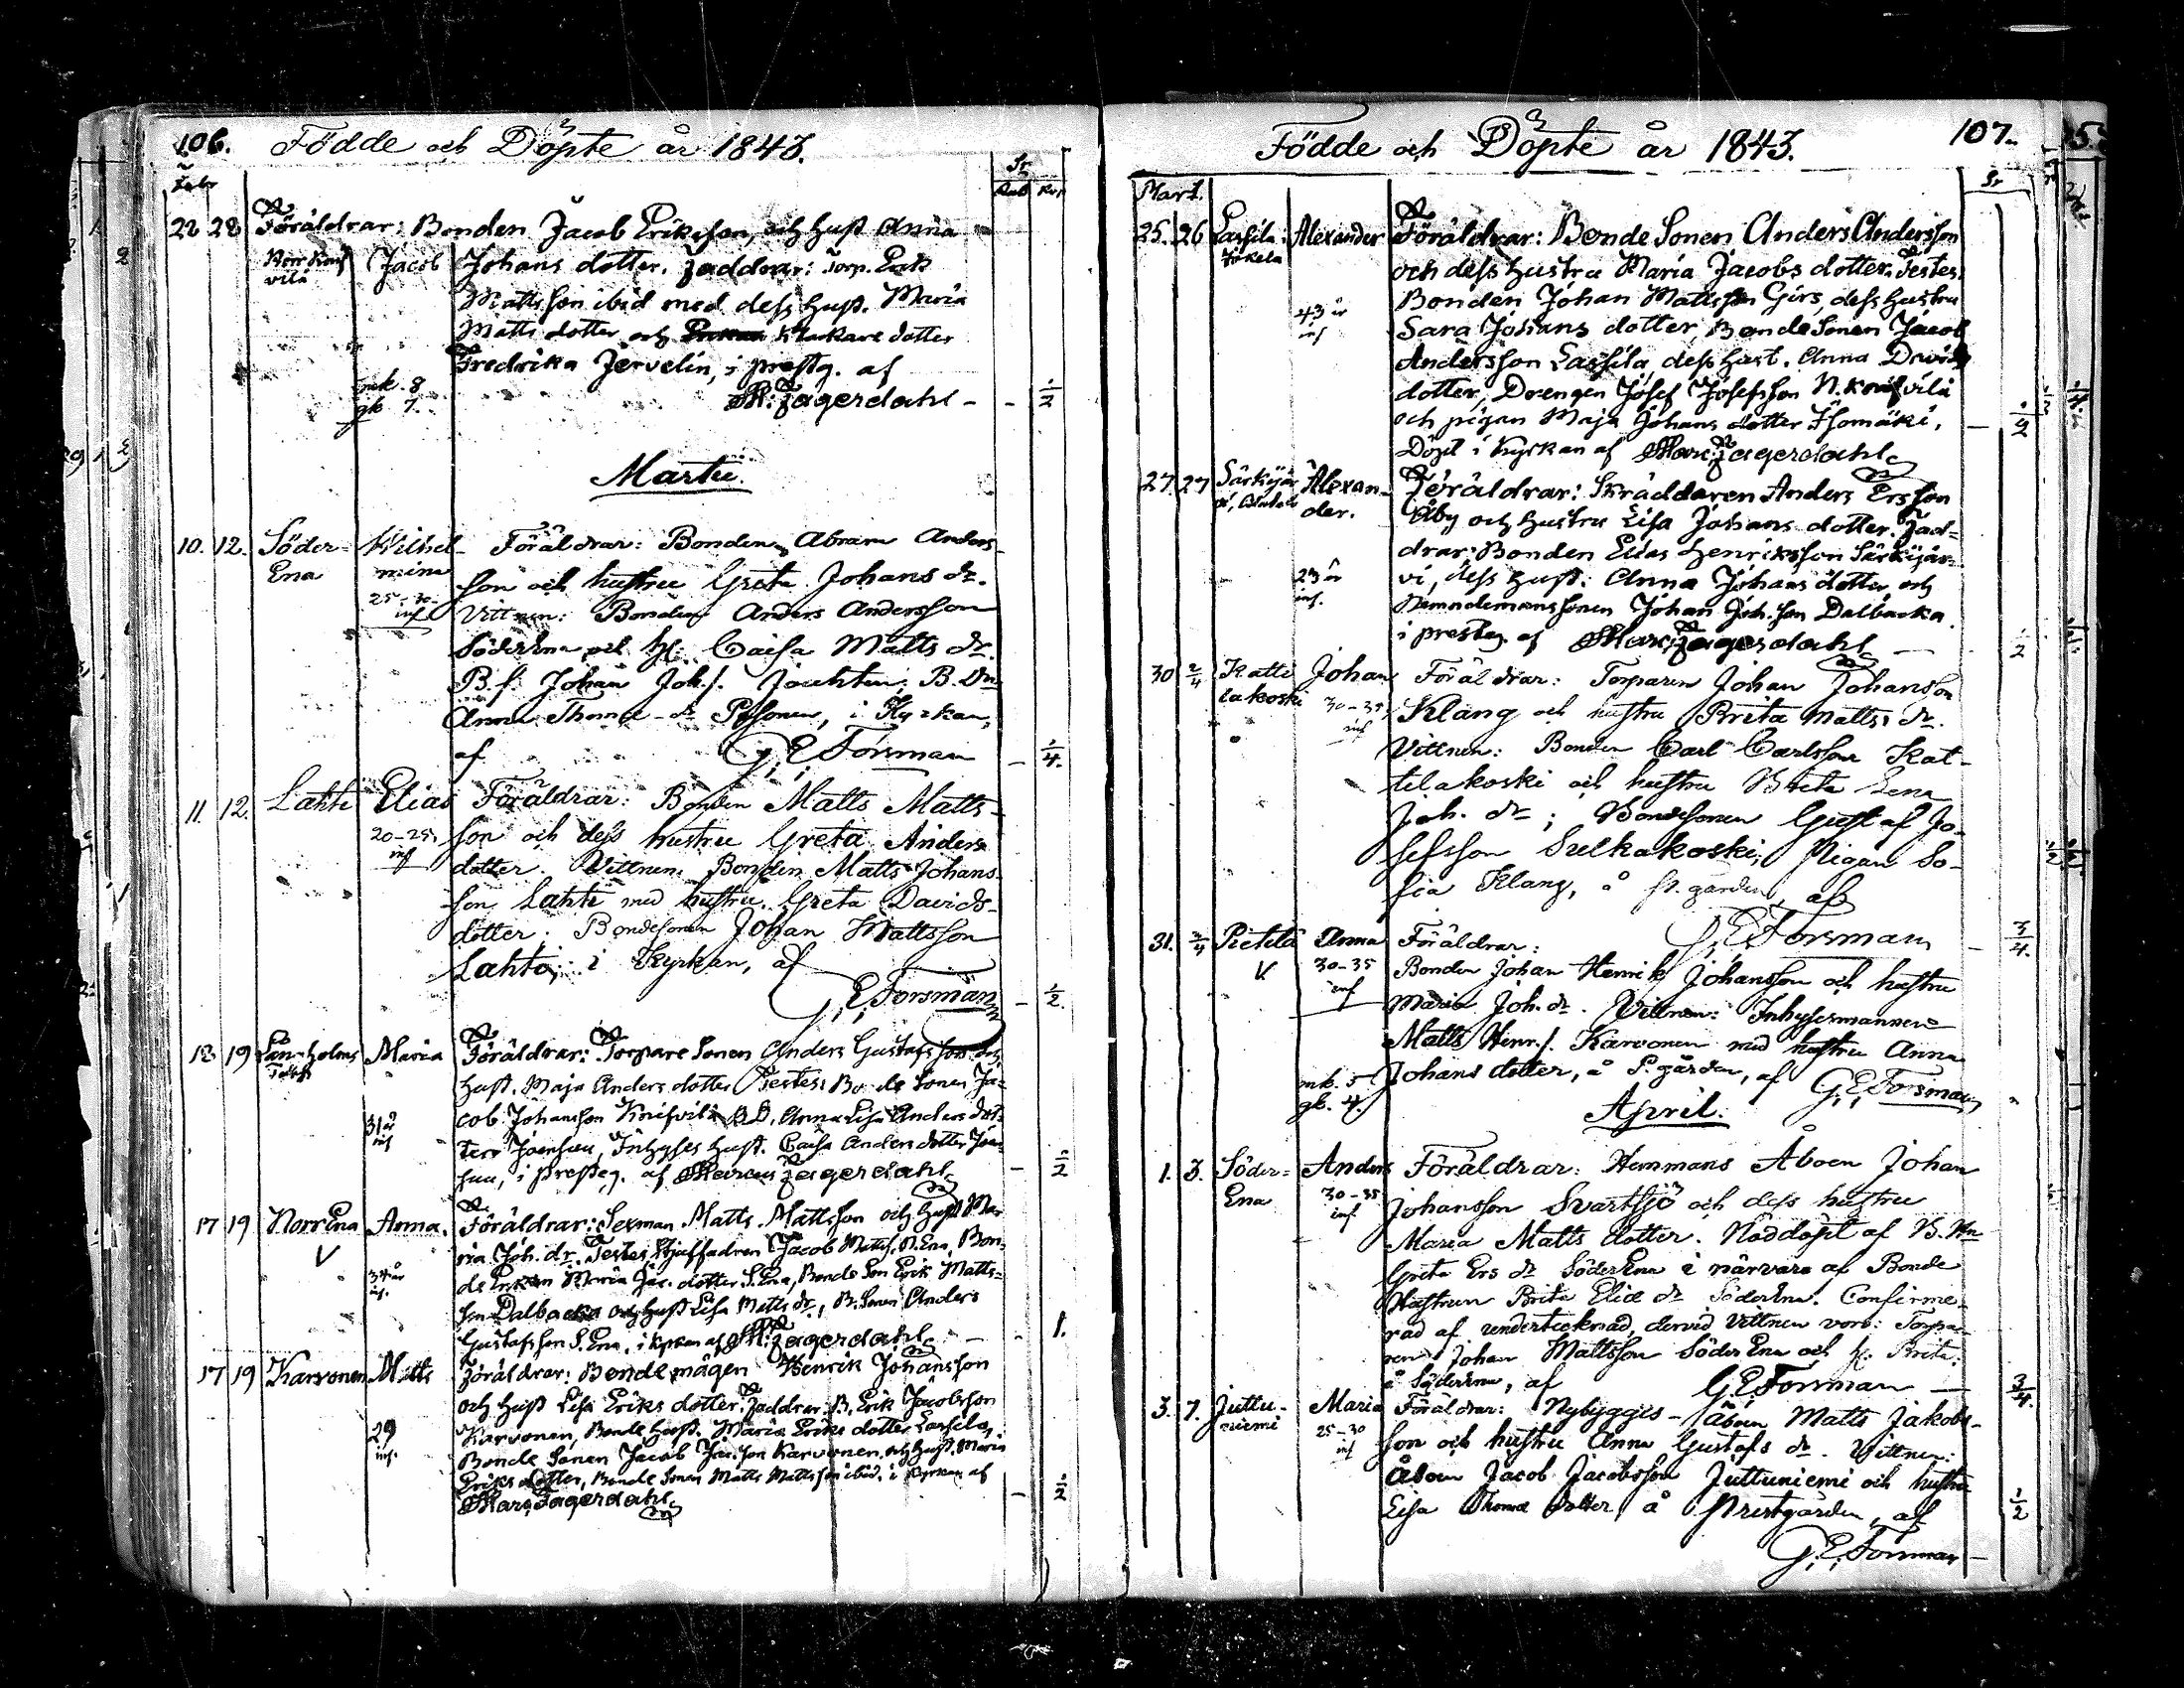 106. Födde och Döpte år 1843.
Febr
Sr
Rub Kop
22 28 Föräldrar: Bonden Jacob Eriksson, och Hust Anna
Jacob Johans dotter. Faddrar: Torp. Erik
Mattsson ibid med dess hust. Maria
Matts dotter och klockare dotter
Fredrika Jervelin, i prestg. af
mk. 8
gk 7.
M: Fagerdahl - - 1/2
Martii.
10. 12. Söder- Wilhel- Föräldrar: Bonden Abram Anders-
Ena mina son och hustru Greta Johans dr.
25-30 inf Vittnen: Bonden Anders Andersson
SöderEna och H: Caisa Matts dr.
B.s. Johan Joh.s. B. Dr
Anna Thomæ dr i Kyrkan,
af G. E. Forsman - 1/4.
11. 12. Lahti Elias Föräldrar: Bonden Matts Matts-
20-25 inf son och dess hustru Greta Anders
dotter. Vittnen: Bonden Matts Johans-
son Lahti med hustru Greta Davids-
dotter. Bondesonen Johan Mattsson
Lahti; i Kyrkan, af
G. E. Forsman - 1/2.
18 19 Maria Föräldrar: Torpare Sonen Anders Gustafsson och
Hust. Maja Anders dotter Testes: Bonde Sonen Ja-
31 år inf cob Johansson Knifvilä B.D. Anna Lisa Anders dot-
ter Inhyses Hust. Caisa Anders dotter
i Presteg. af Marcus Fagerdahl - 1/2
17 19 NorrEna Anna. Föräldrar: Sexman Matts Mattsson och Hust Ma-
V ria Joh. dr. Testes: Jacob Matts. N.Ena, Bon-
34 år inf. Maria Jac. dotter S.Ena, Bonde Son Erik Matts-
son Dalbacka och Hust Lisa Matts dr, B. Sonen Anders
Gustafsson S. Ena, i kyrkan af M: Fagerdahl - 1.
17 19 Karvonen Matts Föräldrar: Bonde mågen Henrik Johansson
och Hust Lisa Eriks dotter. Faddrar: B. Erik Jacobsson
29 inf. Karvonen, Bonde Hust. Maria Eriks dotter Lassila,
Bonde Sonen Jacob Jac. son Karvonen och Hust. Maria
Eriks dotter, Bonde Sonen Matts Mattsson ibid. i kyrkan af
Marc: Fagerdahl - 1/2
Födde och Döpte år 1843. 107.
Mart. Sr
25. 26 Lassila Alexander Föräldrar: Bonde Sonen Anders Andersson
Jokela och dess Hustru Maria Jacobs dotter. Testes:
43 år inf Bonden Johan Mattsson Girs, dess Hustru
Sara Johans dotter, Bonde Sonen Jacob
Andersson Lassila, dess hust. Anna Davids
dotter, Drengen Josef Josefsson N. Knifvilä
och pigan Maja Johans dotter Isomäki,
Döpt i Kyrkan af Marc: Fagerdahl - 1/2
27. 27 Särkijär- Alexan- Föräldrar: Skräddaren Anders Ersson
vi, der. Åby och Hustru Lisa Johans dotter. Fad-
drar: Bonden Elias Henriksson Särkijär-
23 år inf. vi, dess Hust: Anna Johans dotter, och
Nämndemanssonen Johan Joh. son Dalbacka
i presteg. af Marc: Fagerdahl - 1/2
30 2/4 Katti- Johan Föräldrar: Torparen Johan Johansson
lakoski 30-35 inf Klang och hustru Brita Matts dr.
Vittnen: Bonden Carl Carlsson Kat-
tilakoski och hustru Brita Lena
Joh. dr; Bondesonen Gustaf Jo-
sefsson Sulkakoski; Pigan So-
fia Klang, å P. gården, af
G. E. Forsman - 3/4.
31. 2/4 Pietilä Anna Föräldrar:
V. 30-35 inf Bonden Johan Henrik Johansson och hustru
Maria Joh. dr. Vittnen: Inhysesmannen
Matts Henr.s. Karvonen med hustru Anna
mk. 5 Johans dotter, å P. gården, af G. E. Forsman
gk. 4.
April.
1. 3. Söder- Anders Föräldrar: Hemmans Åboen Johan
Ena 30-35 inf. Johansson Svartsjö och dess hustru
Maria Matts dotter. Nöddöpt af B. Hn
Greta Ers dr SöderEna i närvaro af Bonde
Hustrun Brita Eliæ dr SöderEna. Confirme-
rad af undertecknad, dervid Vittnen voro: Torpa-
ren Johan Mattsson SöderEna och H. Brita.
å SöderEna, af G. E. Forsman - 3/4.
3. 7. Juttu- Maria Föräldrar: Nybygges-Åboen Matts Jakobs-
niemi 25-30 inf son och hustru Anna Gustafs dr. Vittnen:
Åboen Jacob Jacobsson Juttuniemi och hustru
Lisa Thomæ dotter, å Prestgården, af 1/2
G. E. Forsman -